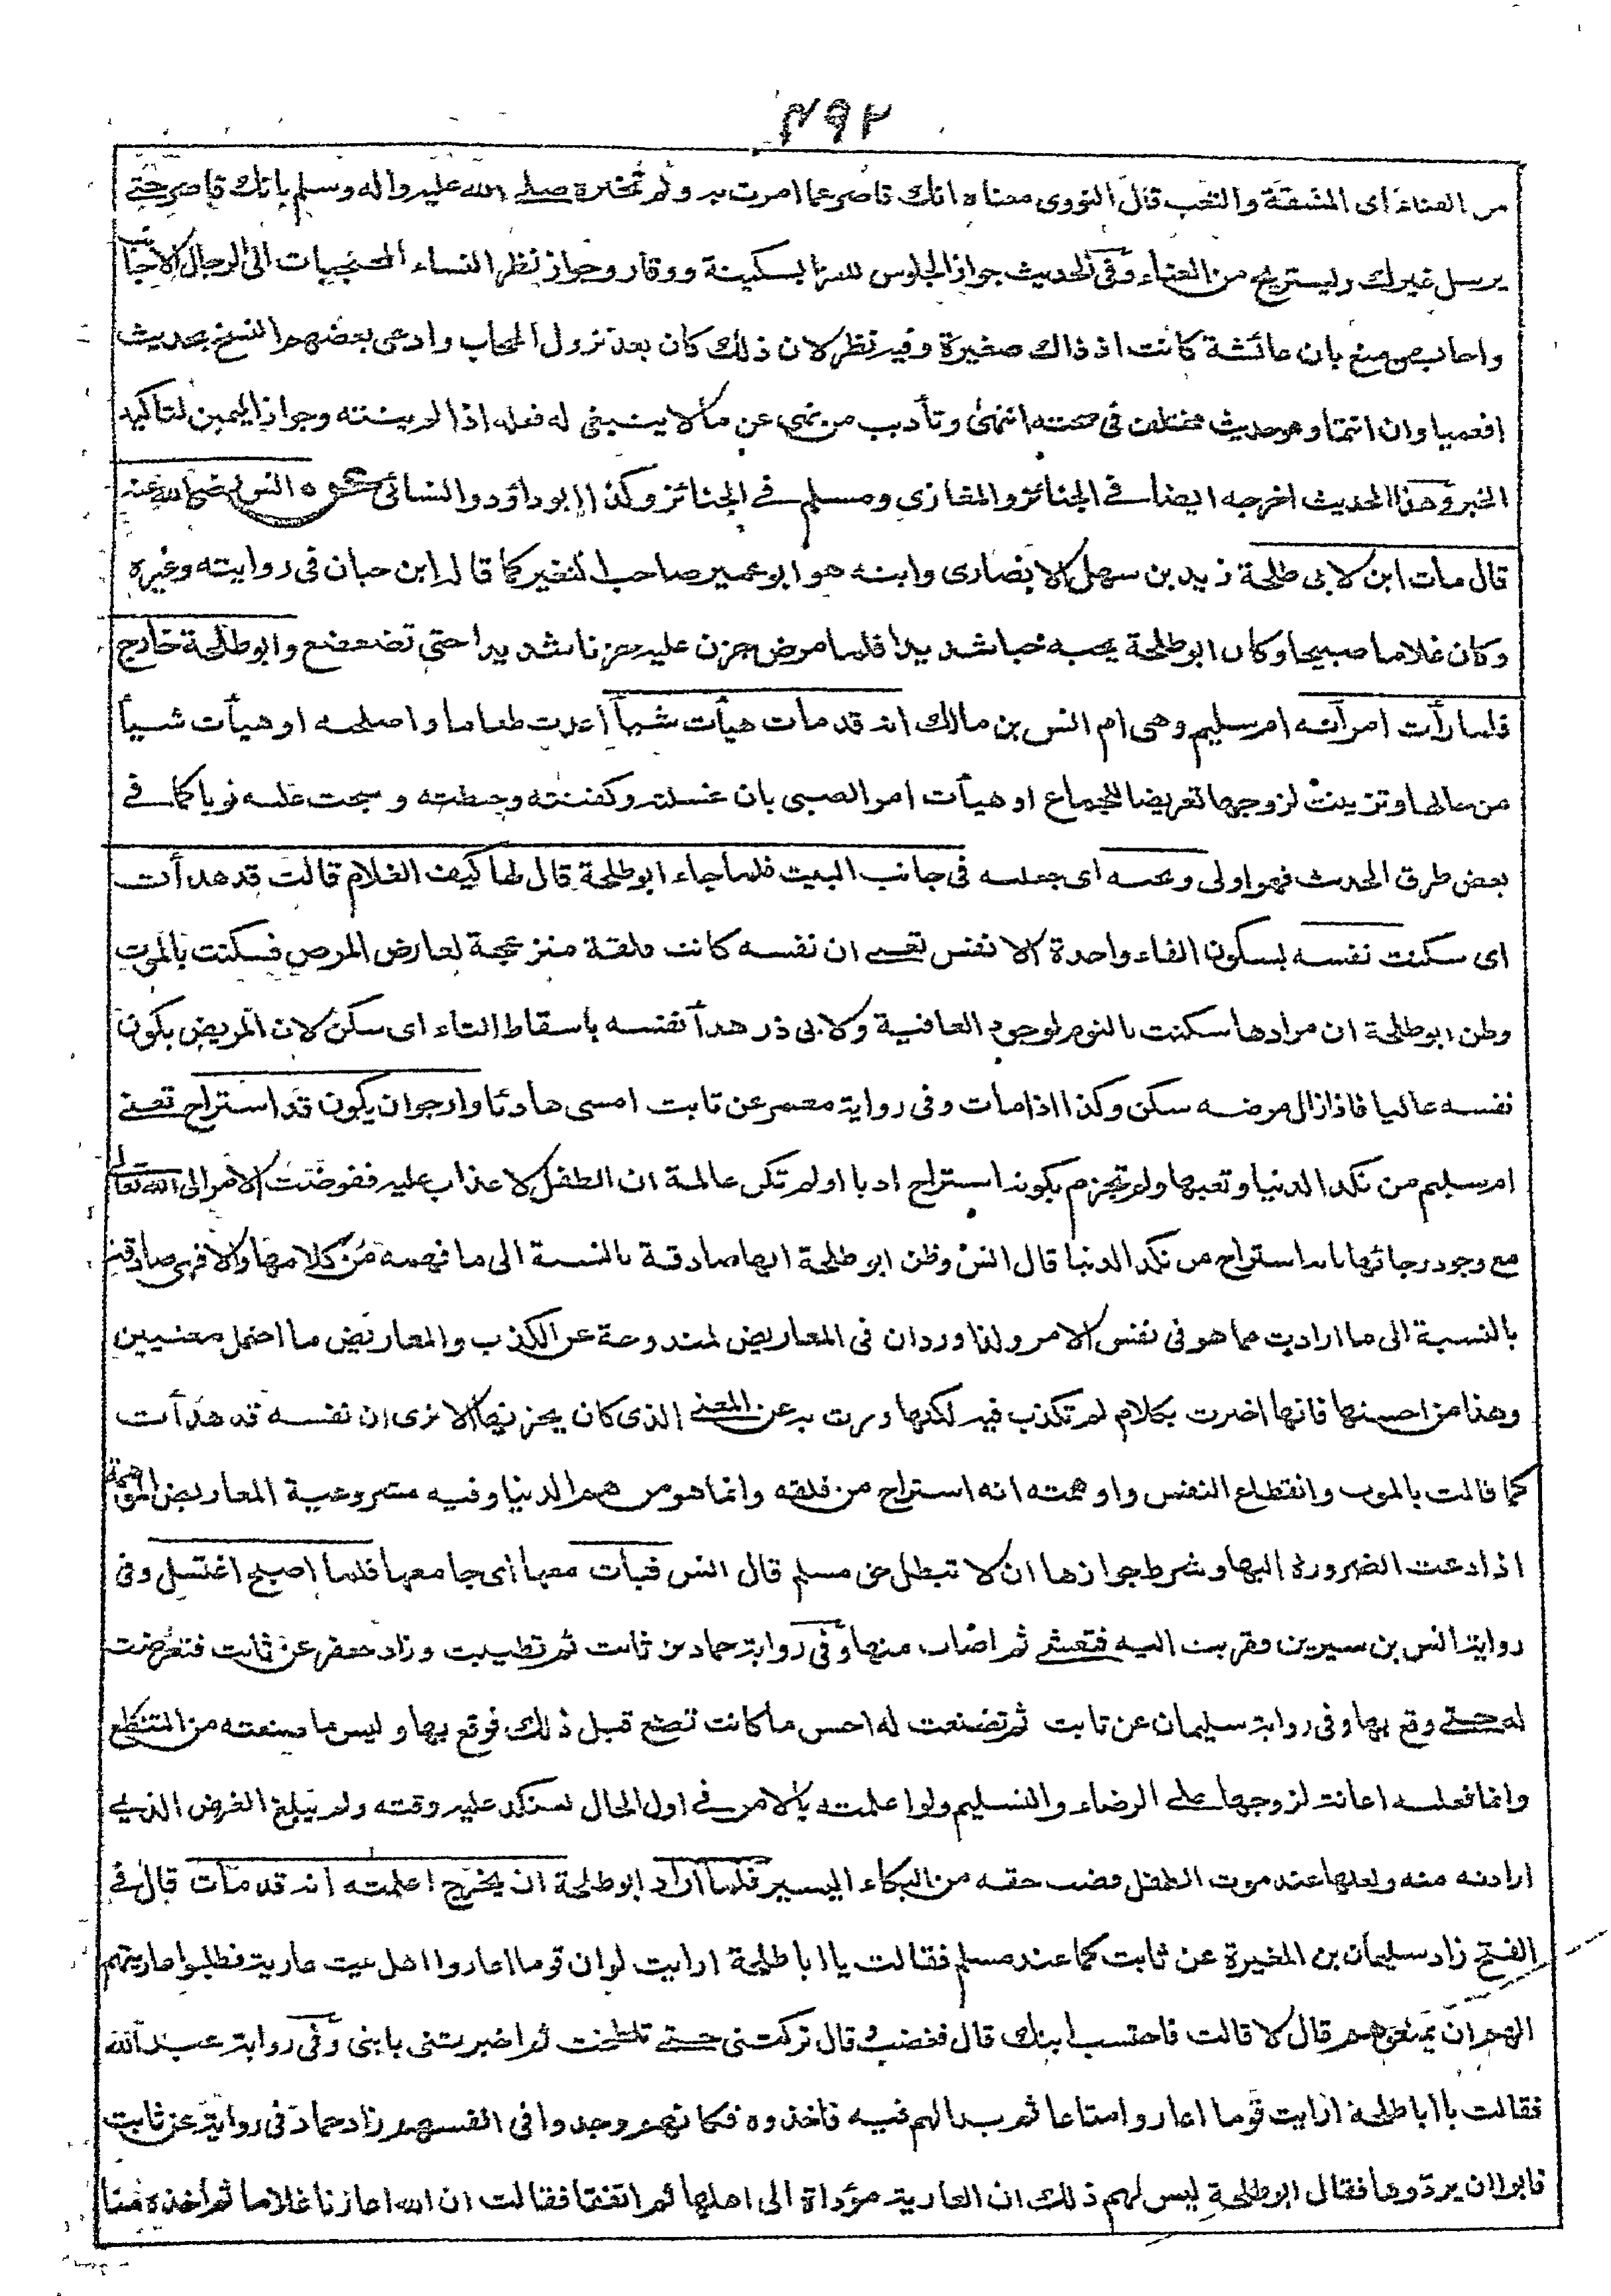 ٤٩٢
من العناء اى المشقة والتعب قال النووى معناه انك قاصر عما امرت به ولم تخبره صلى الله عليه واله وسلم بانك قاصر حتى
يرسل غيرك ويستريح من العناء وفى الحديث جواز الجلوس للعزا بسكينة ووقار وجواز نظر النساء المحتجبات الى الرجال الاجانب
واجاب بعضهم بان عائشة كانت اذ ذاك صغيرة وفيه نظر لان ذلك كان بعد نزول الحجاب وادعى بعضهم النسخ بحديث
افعمياوان انتما وهو حديث مختلف فى صحته انتهى وتأديب من نهى عن ما لا ينبغى له فعله اذا لم ينته وجواز اليمين لتاكيد
الخبر وهذا الحديث اخرجه ايضا فى الجنائز والمغازى ومسلم فى الجنائز وكذا ابو داؤد والنسائى عن انس رضى الله عنه
قال مات ابن لابى طلحة زيد بن سهل الانصارى وابنه هو ابو عمير صاحب النغير كما قاله ابن حبان فى روايته وغيره
وكان غلاما صبيحا وكان ابو طلحة يحبه حبا شديدا فلما مرض حزن عليه حزنا شديدا حتى تضعضع وابو طلحة خارج
فلما رأت امرأته ام سليم وهى ام انس بن مالك انه قد مات هيأت شيأ اعدت طعاما واصلحه او هيأت شيأ
من حالها وتزينت لزوجها تعريضا للجماع او هيأت امر الصبى بان غسلته وكفنته وحنطته وسجت عليه ثوبا كما فى
بعض طرق الحديث فهو اولى ونحته اى جعلته فى جانب البيت فلما جاء ابو طلحة قال لها كيف الغلام قالت قد هدأت
اى سكنت نفسه بسكون الفاء واحدة الانفس تعنى ان نفسه كانت قلقة منزعجة لعارض المرض فسكنت بالموت
وظن ابو طلحة ان مرادها سكنت بالنوم لوجود العافية ولابى ذر هدأ نفسه باسقاط التاء اى سكن لان المريض يكون
نفسه عاليا فاذا زال مرضه سكن وكذا اذا مات وفى رواية معمر عن ثابت امسى هادئا وارجو ان يكون قد استراح تعنى
ام سليم من نكد الدنيا وتعبها ولم تجزم بكونه استراح ادبا او لم تكن عالمة ان الطفل لا عذاب عليه ففوضت الامر الى الله تعالى
مع وجود رجائها بانه استراح من نكد الدنيا قال انس وظن ابو طلحة انها صادقة بالنسبة الى ما فهمه من كلامها والا فهى صادقة
بالنسبة الى ما ارادت مما هو فى نفس الامر ولذا ورد ان فى المعاريض لمندوحة عن الكذب والمعاريض ما احتمل معنيين
وهذا من احسنها فانها اخبرت بكلام لم تكذب فيه لكنها ورت به عن المعنى الذى كان يحزنها الا ترى ان نفسه قد هدأت
كما قالت بالموت وانقطاع النفس واوهمته انه استراح من قلقه وانما هو من هم الدنيا وفيه مشروعية المعاريض الموهمة
اذا دعت الضرورة اليها وشرط جوازها ان لا تبطل حق مسلم قال انس فبات معها اى جامعها فلما اصبح اغتسل وفى
رواية انس بن سيرين فقربت اليه فتعشى ثم اصاب منها وفى رواية حماد بن ثابت ثم تطيبت وزاد جعفر عن ثابت فتعرضت
له حتى وقع بها وفى رواية سليمان عن ثابت ثم تصنعت له احسن ما كانت تصنع قبل ذلك فوقع بها وليس ما صنعته من التنطع
وانما فعلته اعانة لزوجها على الرضاء والتسليم ولو اعلمته بالامر فى اول الحال لتنكد عليه وقته ولم يبلغ الغرض الذى
ارادته منه ولعلها عند موت الطفل قضت حقه من البكاء اليسير فلما اراد ابو طلحة ان يخرج اعلمته انه قد مات قال فى
الفتح زاد سليمان بن المغيرة عن ثابت كما عند مسلم فقالت يا ابا طلحة ارايت لو ان قوما اعاروا اهل بيت عارية فطلبوا عاريتهم
الهم ان يمنعوهم قال لا قالت فاحتسب ابنك قال فغضب وقال تركتنى حتى تلطخت ثم اخبرتنى بابنى وفى رواية عبد الله
فقالت يا ابا طلحة ارايت قوما اعاروا متاعا ثم بدا لهم فيه فاخذوه فكانهم وجدوا فى انفسهم زاد حماد فى رواية عن ثابت
فابوا ان يردوها فقال ابو طلحة ليس لهم ذلك ان العارية مؤداة الى اهلها ثم اتفقا فقالت ان الله اعارنا غلاما ثم اخذه منا